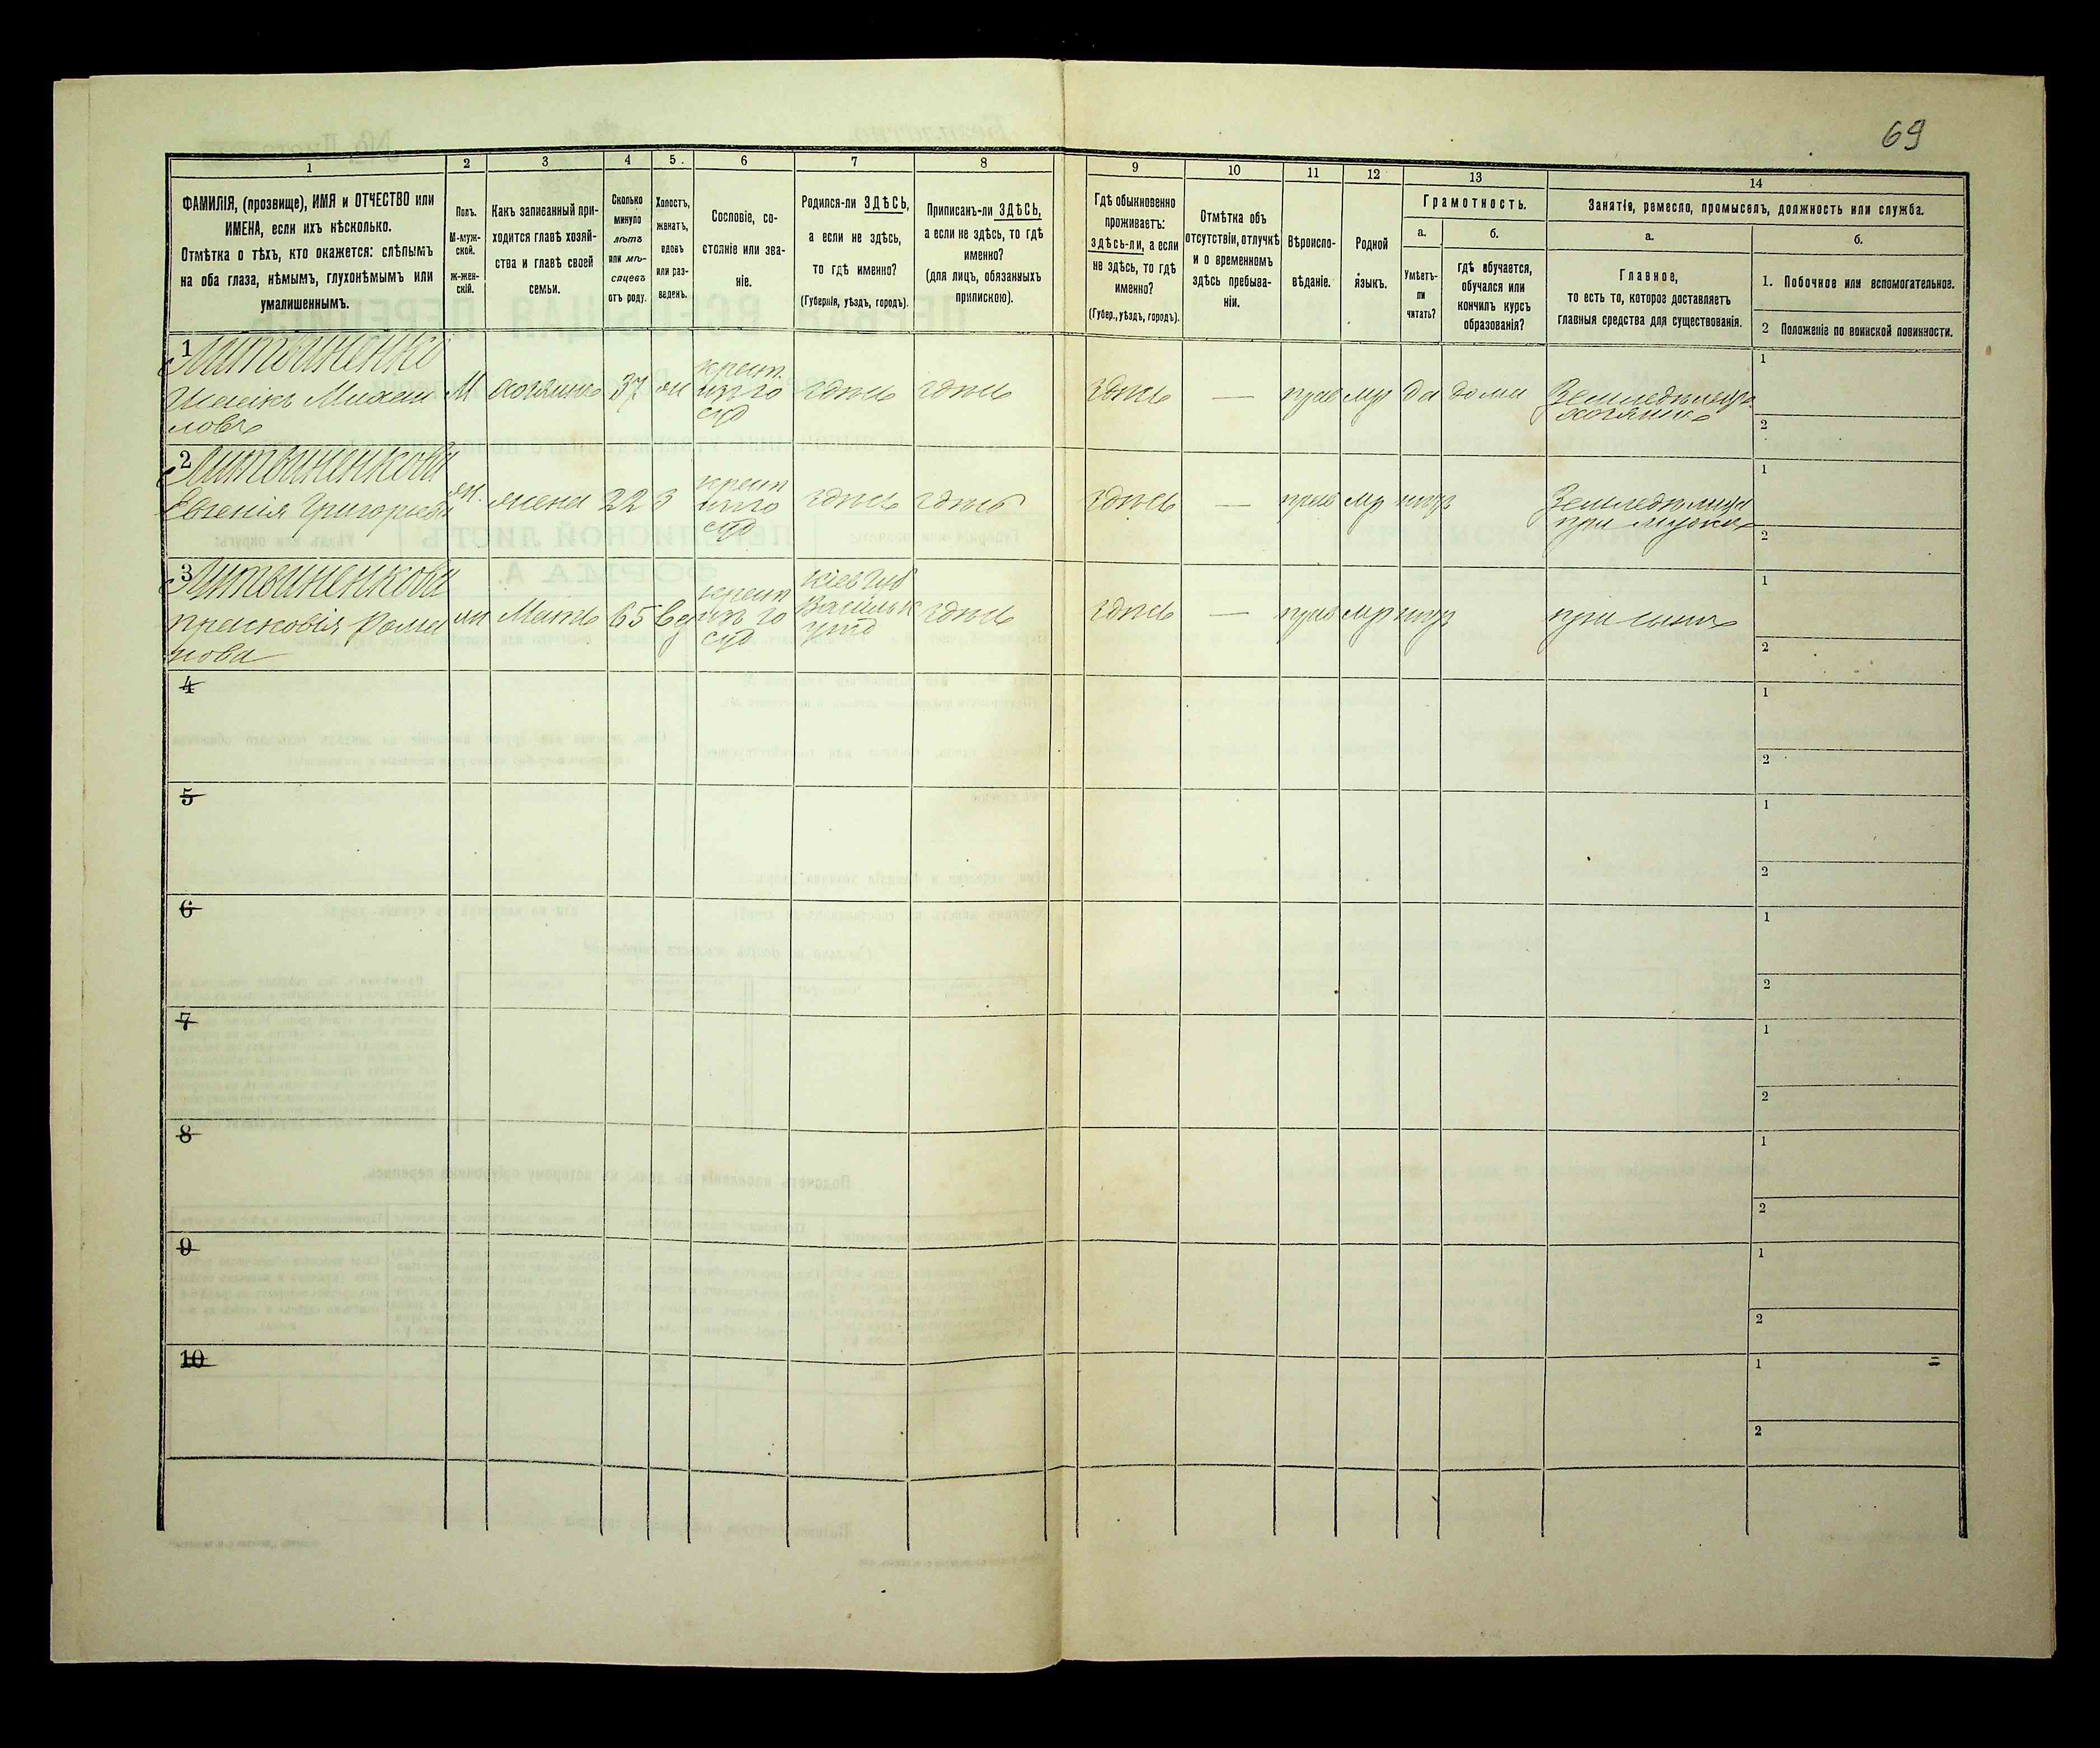 69
1
ФАМИЛІЯ, (прозвище), ИМЯ и ОТЧЕСТВО или
ИМЕНА, если ихъ нѣсколько.
Отмѣтка о тѣхъ, кто окажется: слѣпымъ
на оба глаза, нѣмымъ, глухонѣмымъ или
умалишеннымъ.
2
Полъ.
М-муж-
ской.
ж-жен-
скій.
3
Какъ записанный при-
ходится главѣ хозяй-
ства и главѣ своей
семьи.
4
Сколько
минуло
лѣтъ
или мѣ-
сяцевъ
отъ роду.
5.
Холостъ,
женатъ,
вдовъ
или раз-
веденъ.
6
Сословіе, со-
стояніе или зва-
ніе.
7
Родился-ли ЗДѢСЬ,
а если не здѣсь,
то гдѣ именно?
(Губернія, уѣздъ, городъ).
8
Приписанъ-ли ЗДѢСЬ,
а если не здѣсь, то гдѣ
именно?
(для лицъ, обязанныхъ
припискою).
9
Гдѣ обыкновенно
проживаетъ:
здѣсь-ли, а если
не здѣсь, то гдѣ
именно?
(Губер., уѣздъ, городъ).
10
Отмѣтка объ
отсутствіи, отлучкѣ
и о временномъ
здѣсь пребыва-
ніи.
11
Вѣроиспо-
вѣданіе.
12
Родной
языкъ.
13
Грамотность.
а.
Умѣетъ-
ли
читать?
б.
гдѣ обучается,
обучался или
кончилъ курсъ
образованія?
14
Занятіе, ремесло, промыселъ, должность или служба.
а.
Главное,
то есть то, которое доставляетъ
главныя средства для существованія.
б.
1. Побочное или вспомогательное.
2 Положеніе по воинской повинности.
1
Литвиненко
Михаи
ловъ
М
хозяинъ
37
жн
крест.
изъ го
суд
здѣсь
здѣсь
здѣсь
—
прав
мр
да
дома
Земледѣлецъ
хозяинъ
1
2
2
Литвиненкова
Евгенія Григорьева
ж.
жена
22
З
крест
изъ го
суд
здѣсь
здѣсь
здѣсь
—
прав
мр
нѣтъ
при мужѣ
1
2
3
Литвиненкова
Прасковія Рома
нова
ж
Мать
65
вд
крест
изъ го
суд
Кіев Губ
Васильк
узд
здѣсь
здѣсь
—
прав
мр
нѣтъ
при сынѣ
1
2
4
1
2
5
1
2
6
1
2
7
1
2
8
1
2
9
1
2
10
1
2